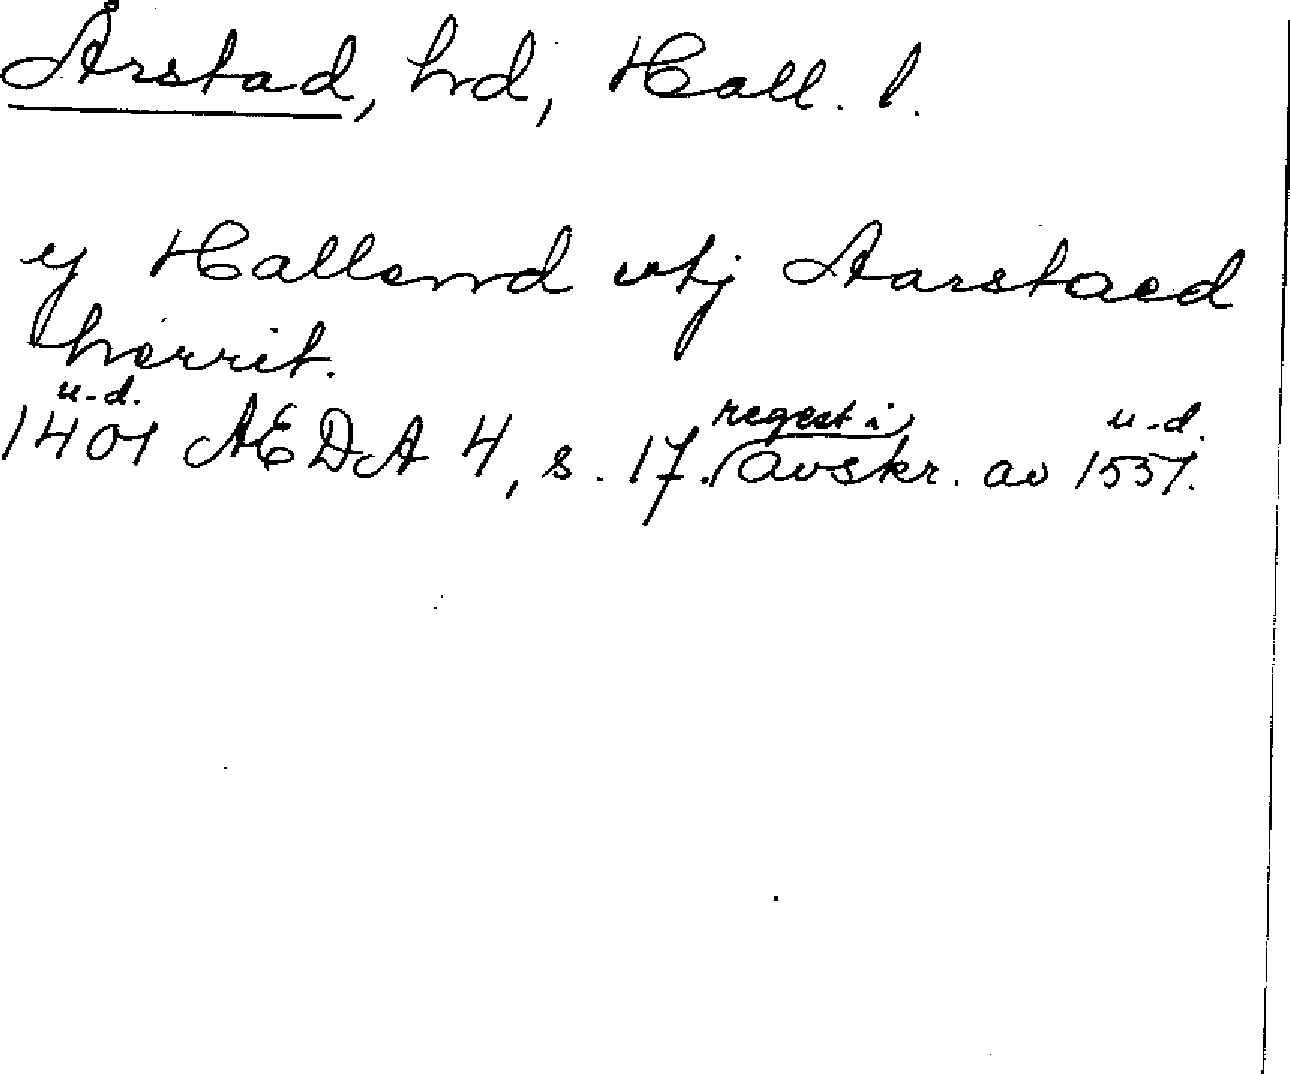 Årstad, hd, Hall. l.
y Halland vtj Aarstaed
herrit.
u.d.
1401 ÆDA 4, s. 17. regest i avskr. av 1551. u.d.